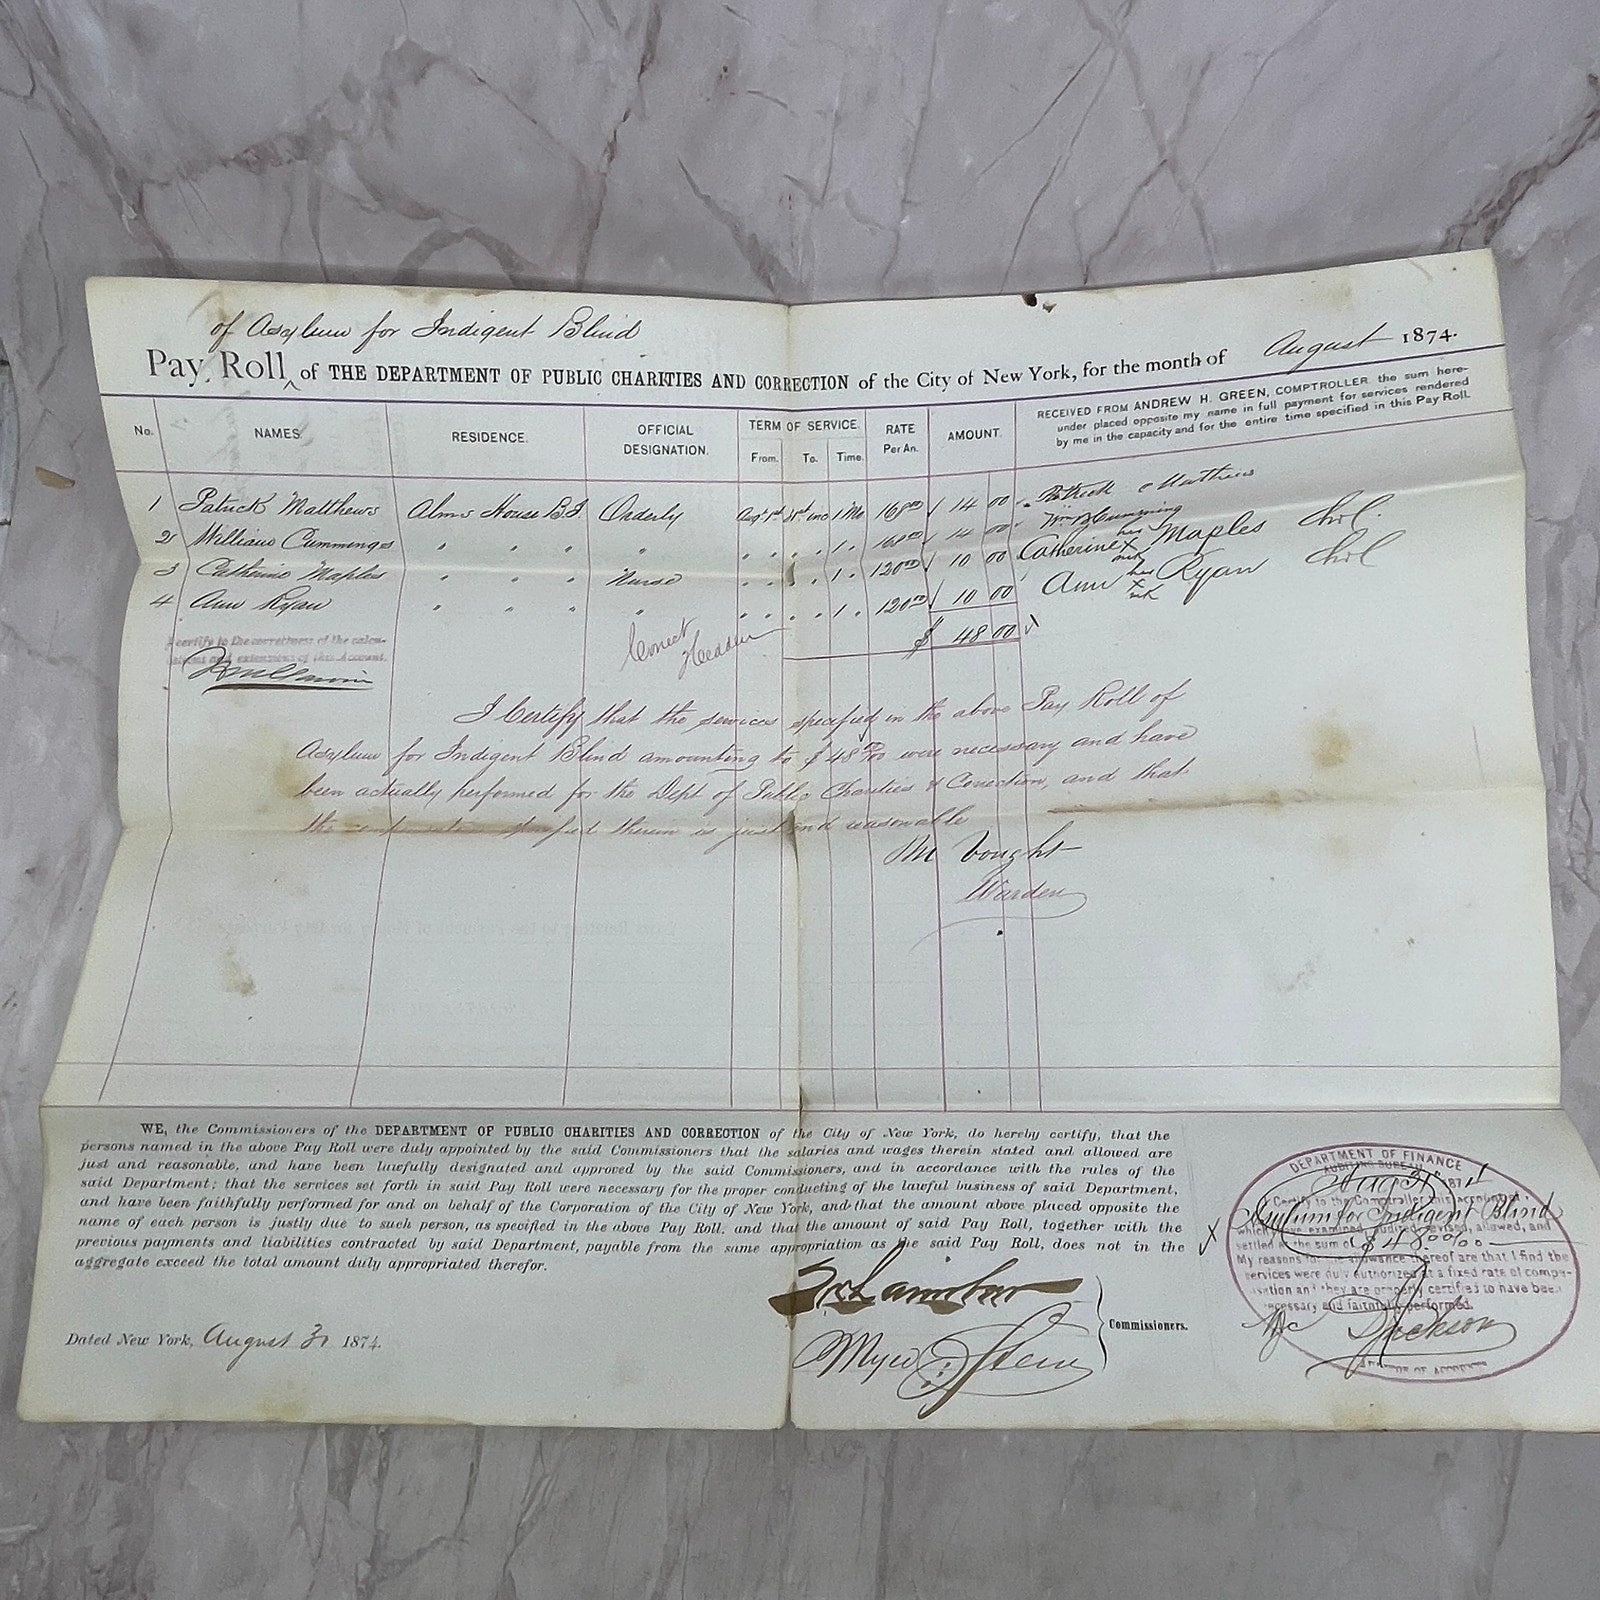 of Asylum for Indigent Blind
Pay Roll of THE DEPARTMENT OF PUBLIC CHARITIES AND CORRECTION of the City of New York, for the month of August 1874.
No. NAMES. RESIDENCE. OFFICIAL DESIGNATION. TERM OF SERVICE. From. To. Time. RATE Per An. AMOUNT.
RECEIVED FROM ANDREW H. GREEN, COMPTROLLER the sum here-
under placed opposite my name in full payment for services rendered
by me in the capacity and for the entire time specified in this Pay Roll.
1 Patrick Matthews Alms House B.I. Orderly Augt 1st 31st inc 1 Mo 168 00 14 00 Patrick Matthews
2 William Cummings " " " " " " " " 1 " 168 00 14 00 Wm Cumming
3 Catherine Maples " " " Nurse " " " " 1 " 120 00 10 00 Catherine her x mk Maples
4 Ann Ryan " " " " " " " " 1 " 120 00 10 00 Ann her x mk Ryan
$ 48 00
I certify to the correctness of the calcu-
lations and extensions of this Account.
Correct
I Certify that the services specified in the above Pay Roll of
Asylum for Indigent Blind amounting to $48 00/100 were necessary and have
been actually performed for the Dept of Public Charities & Correction, and that
the compensation specified therein is just and reasonable
M Vought
Warden
WE, the Commissioners of the DEPARTMENT OF PUBLIC CHARITIES AND CORRECTION of the City of New York, do hereby certify, that the
persons named in the above Pay Roll were duly appointed by the said Commissioners that the salaries and wages therein stated and allowed are
just and reasonable, and have been lawfully designated and approved by the said Commissioners, and in accordance with the rules of the
said Department; that the services set forth in said Pay Roll were necessary for the proper conducting of the lawful business of said Department,
and have been faithfully performed for and on behalf of the Corporation of the City of New York, and that the amount above placed opposite the
name of each person is justly due to such person, as specified in the above Pay Roll, and that the amount of said Pay Roll, together with the
previous payments and liabilities contracted by said Department, payable from the same appropriation as the said Pay Roll, does not in the
aggregate exceed the total amount duly appropriated therefor.
Myer Stern
Commissioners.
Dated New York, August 31 1874.
DEPARTMENT OF FINANCE
AUDITING BUREAU
Aug 31 1874
I Certify to the Comptroller this account
Asylum for Indigent Blind
which I have examined, audited, revised, allowed, and
settled at the sum of $48 00/100
My reasons for the allowance thereof are that I find the
services were duly authorized at a fixed rate of compe-
nsation and they are properly certified to have been
necessary and faithfully performed.
Jackson
AUDITOR OF ACCOUNTS